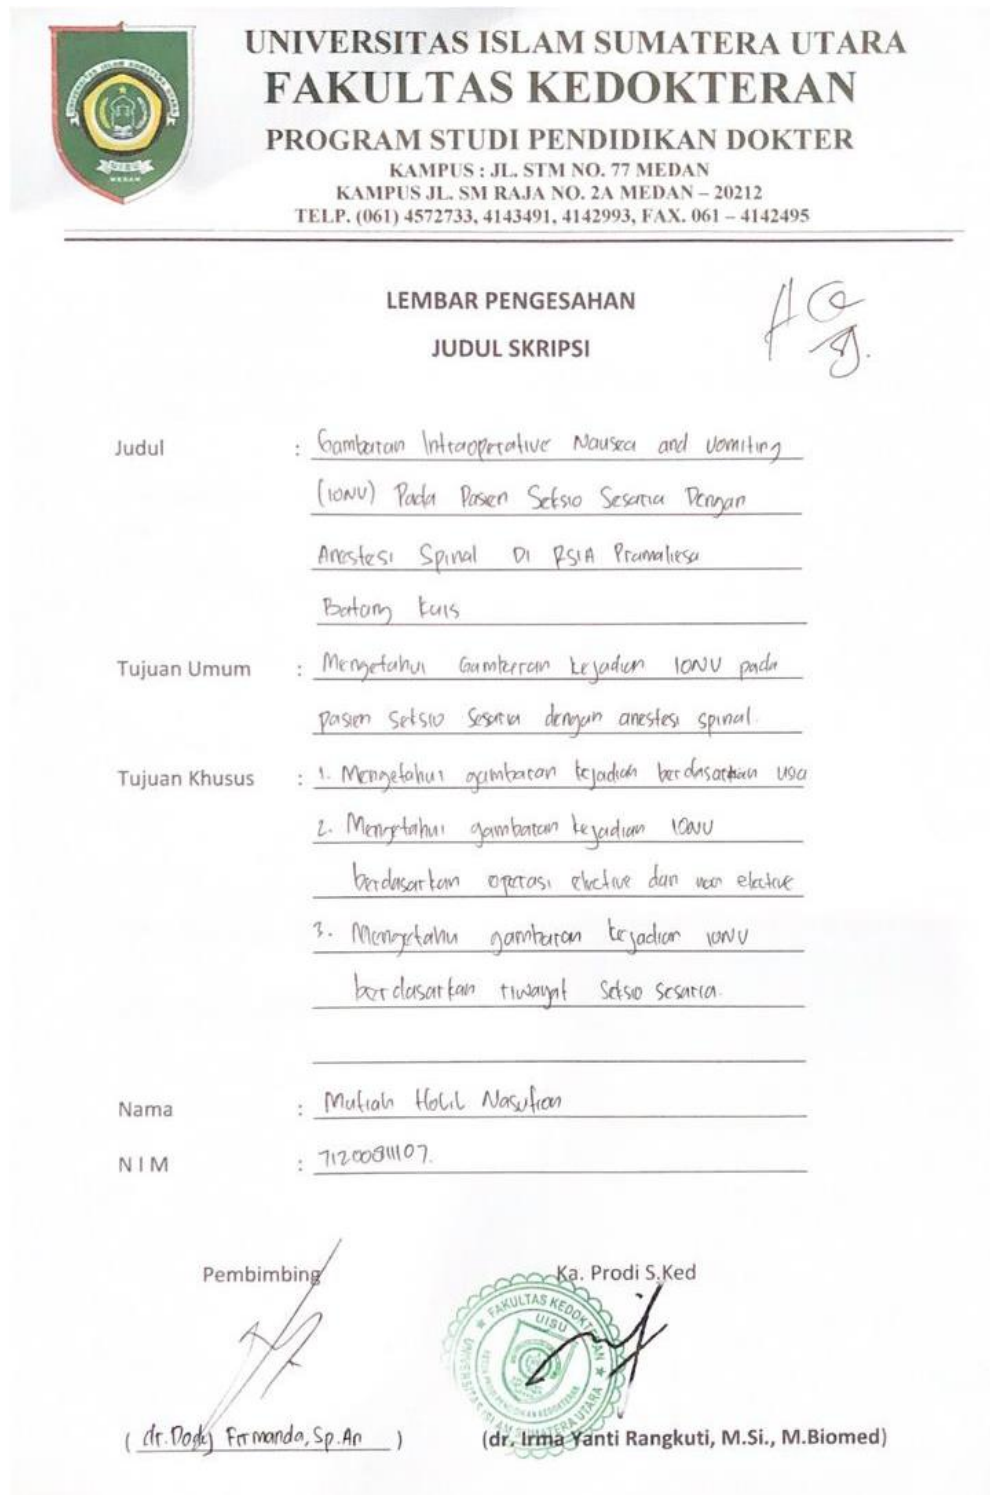 UNIVERSITAS ISLAM SUMATERA UTARA
FAKULTAS KEDOKTERAN
PROGRAM STUDI PENDIDIKAN DOKTER
KAMPUS : JL. STM NO. 77 MEDAN
KAMPUS JL. SM RAJA NO. 2A MEDAN – 20212
TELP. (061) 4572733, 4143491, 4142993, FAX. 061 – 4142495
UNIVERSITAS ISLAM SUMATERA UTARA
UISU
MEDAN
LEMBAR PENGESAHAN
JUDUL SKRIPSI
Judul : Gambaran Intraoperative Nausea and Vomiting
(IONV) Pada Pasien Seksio Sesaria Dengan
Anestesi Spinal Di RSIA Pramaliesa
Batang Kuis
Tujuan Umum : Mengetahui Gambaran kejadian IONV pada
pasien seksio sesaria dengan anestesi spinal.
Tujuan Khusus : 1. Mengetahui gambaran kejadian berdasarkan usia
2. Mengetahui gambaran kejadian IONV
berdasarkan operasi elective dan non elective
3. Mengetahui gambaran kejadian IONV
berdasarkan riwayat seksio sesaria.
Nama : Mutiah Holil Nasution
NIM : 71200811107.
Pembimbing Ka. Prodi S.Ked
FAKULTAS KEDOKTERAN
UISU
UNIVERSITAS ISLAM SUMATERA UTARA
( dr. Dody Firmanda, Sp.An ) (dr. Irma Yanti Rangkuti, M.Si., M.Biomed)